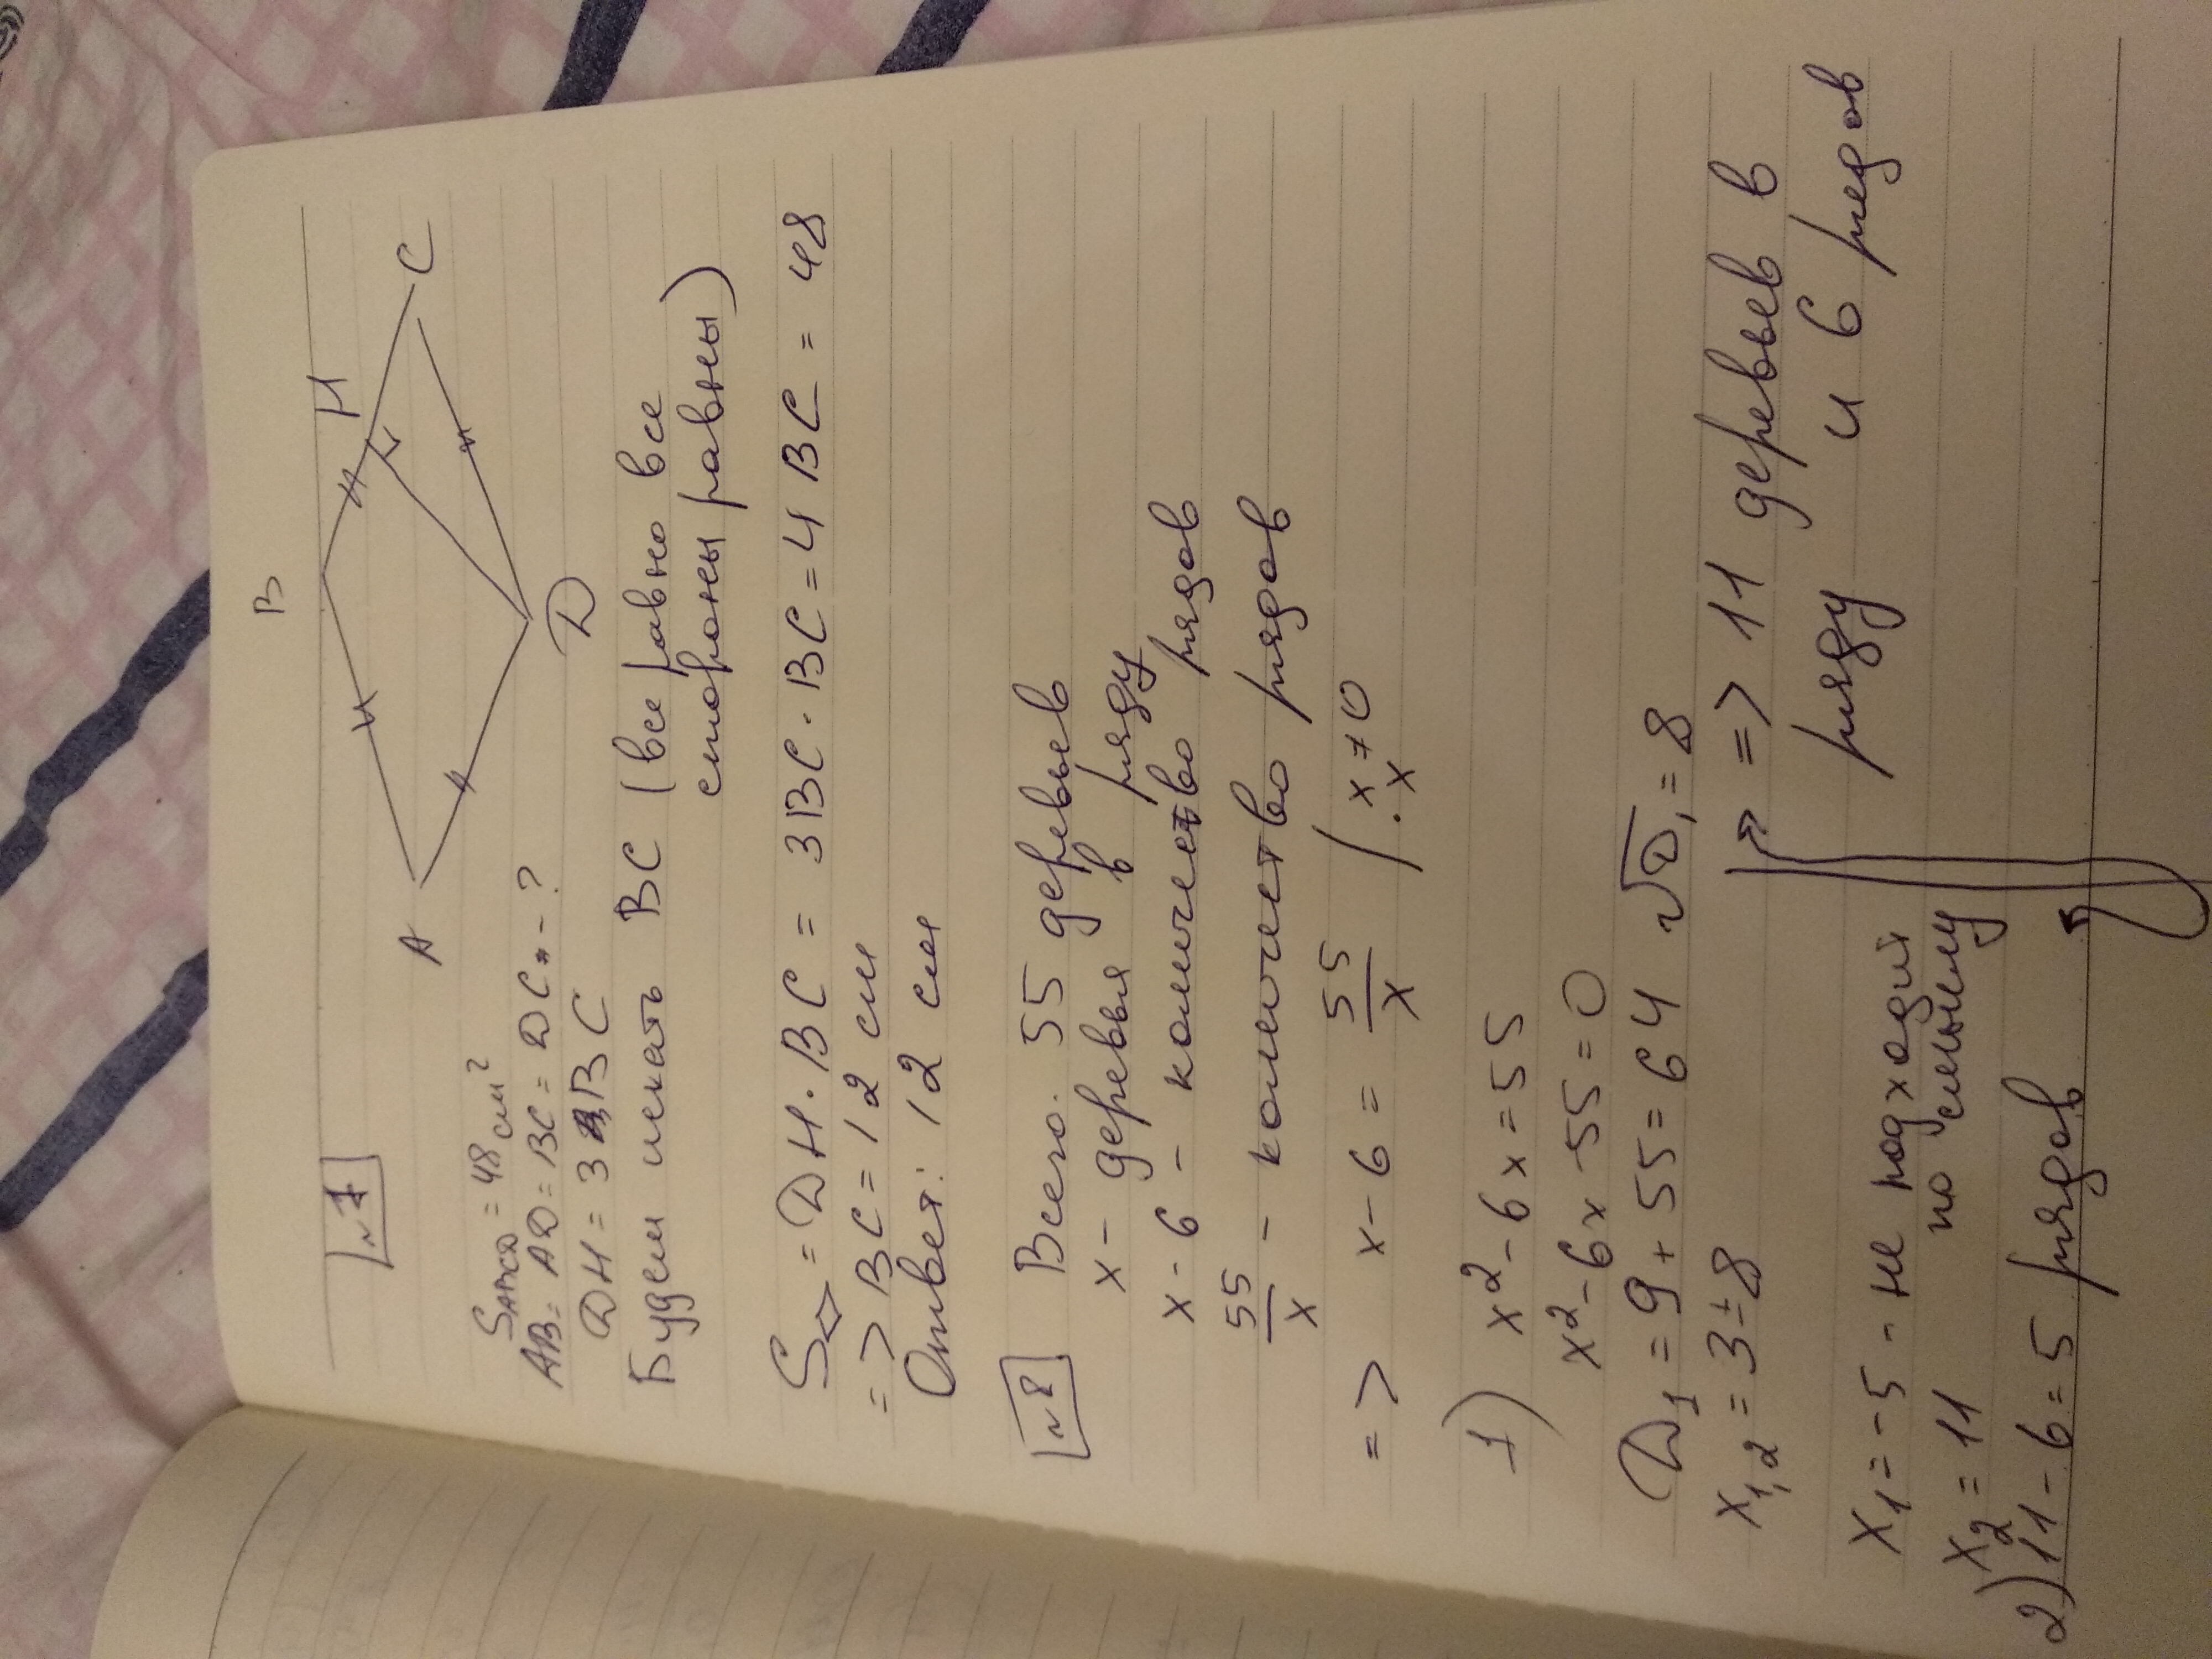 №7
B
H
A
C
D
S ABCD = 48 см²
AB = AD = BC = DC - ?
DH = 3 BC
Будем искать BC (все равно все
стороны равны)
S◇ = DH · BC = 3BC · BC = 4 BC = 48
=> BC = 12 см
Ответ: 12 см
№8 Всего. 55 деревьев
x - деревья в ряду
x - 6 - количество рядов
55/x - количество рядов
=> x - 6 = 55/x | x ≠ 0
· x
1) x² - 6x = 55
x² - 6x - 55 = 0
D₁ = 9 + 55 = 64 √D₁ = 8
x₁,₂ = 3 ± 8
x₁ = -5 - не подходит
по смыслу
x₂ = 11
2) 11 - 6 = 5 рядов
=> 11 деревьев в
ряду и 6 рядов